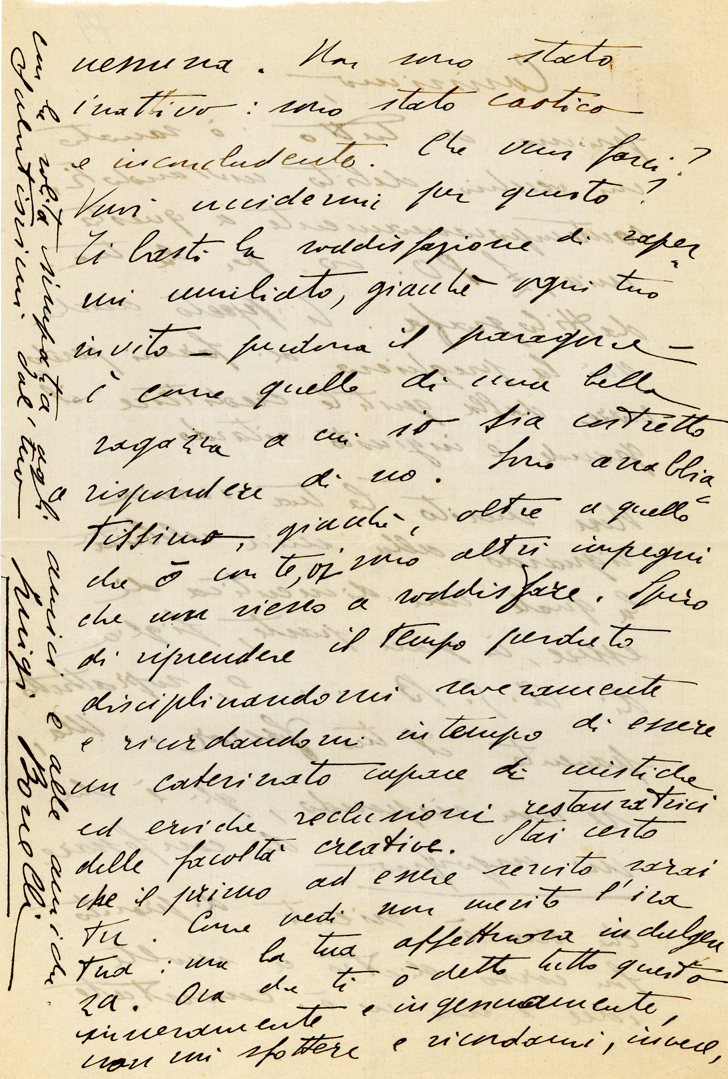 nessuna. Non sono stato
inattivo: sono stato caotico
e inconcludente. Che vuoi farci?
Vuoi uccidermi per questo?
Ti basti la soddisfazione di saper=
mi umiliato, giacchè ogni tuo
invito – perdona il paragone –
è come quello di una bella
ragazza a cui io sia costretto
rispondere di no. Sono arrabbia=
tissimo, giacchè, oltre a quello
che ò con te, vi sono altri impegni
che non riesco a soddisfare. Spero
di riprendere il tempo perduto
disciplinandomi severamente
e ricordandomi in tempo di essere
un caterinato capace di mistiche
ed eroiche reclusioni restauratrici
delle facoltà creative. Stai certo
che il primo ad essere servito sarai
tu. Come vedi non merito l'ira
tua: ma la tua affettuosa indulgen
za. Ora che ti ò detto tutto questo
sinceramente e ingenuamente,
non mi sfottere e ricordami, invece,
con la solita simpatia agli amici e alle amiche
Salutissimi dal tuo
Luigi Bonelli